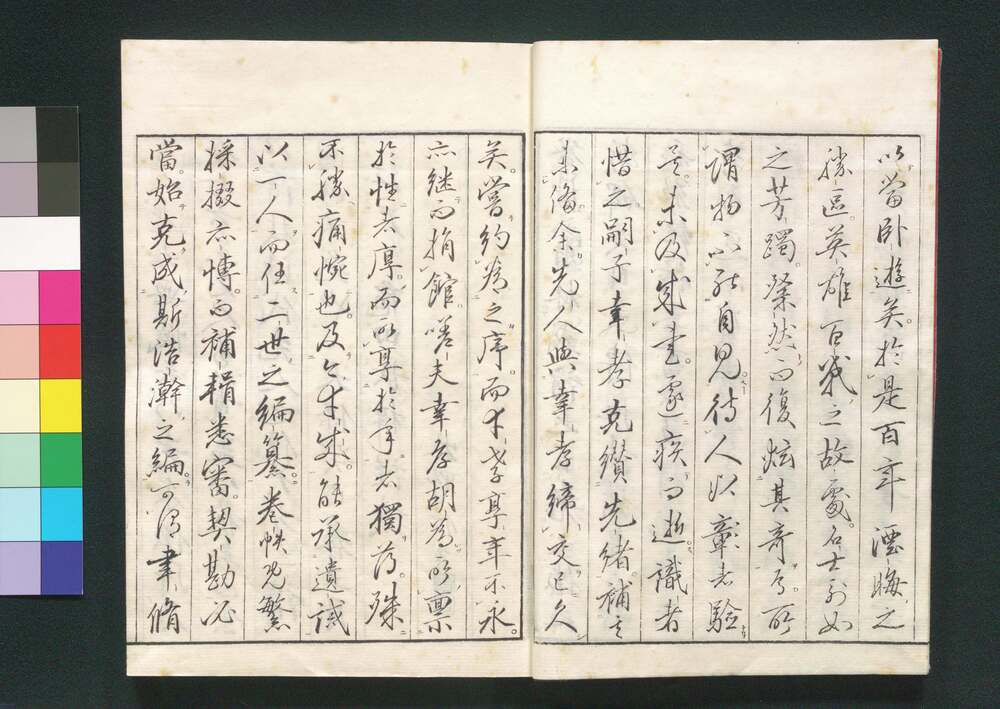 以當卧遊矣於是百年湮晦之
勝區英雄百戰之故處名士列女
之芳躅粲然而復炫其奇焉所
謂物不能自見待人以彰者驗
矣未及成書遽疾而逝識者
惜之嗣子幸孝克纘先緒補其
未備余先人與幸孝締交已久
矣嘗約為之序而幸孝享年不永
亦継而捐館嗟夫幸孝胡為所稟
於性者厚而所享於年者獨薄殊
不勝痛惋也及今幸成能承遺誡
以一人而任二世之編纂巻帙既繁
採掇亦博而補輯悉審契勘必
當始克成斯浩瀚之編可謂聿脩